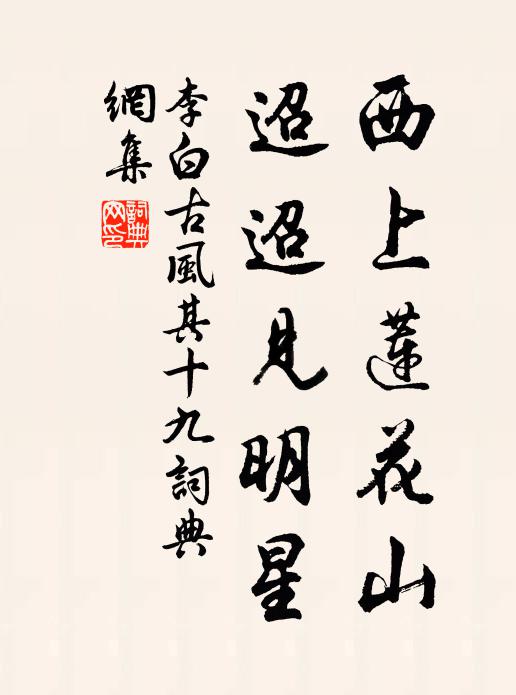 西上蓮花山
迢迢見明星
李白古風其十九詞典
網集
詞典
网印